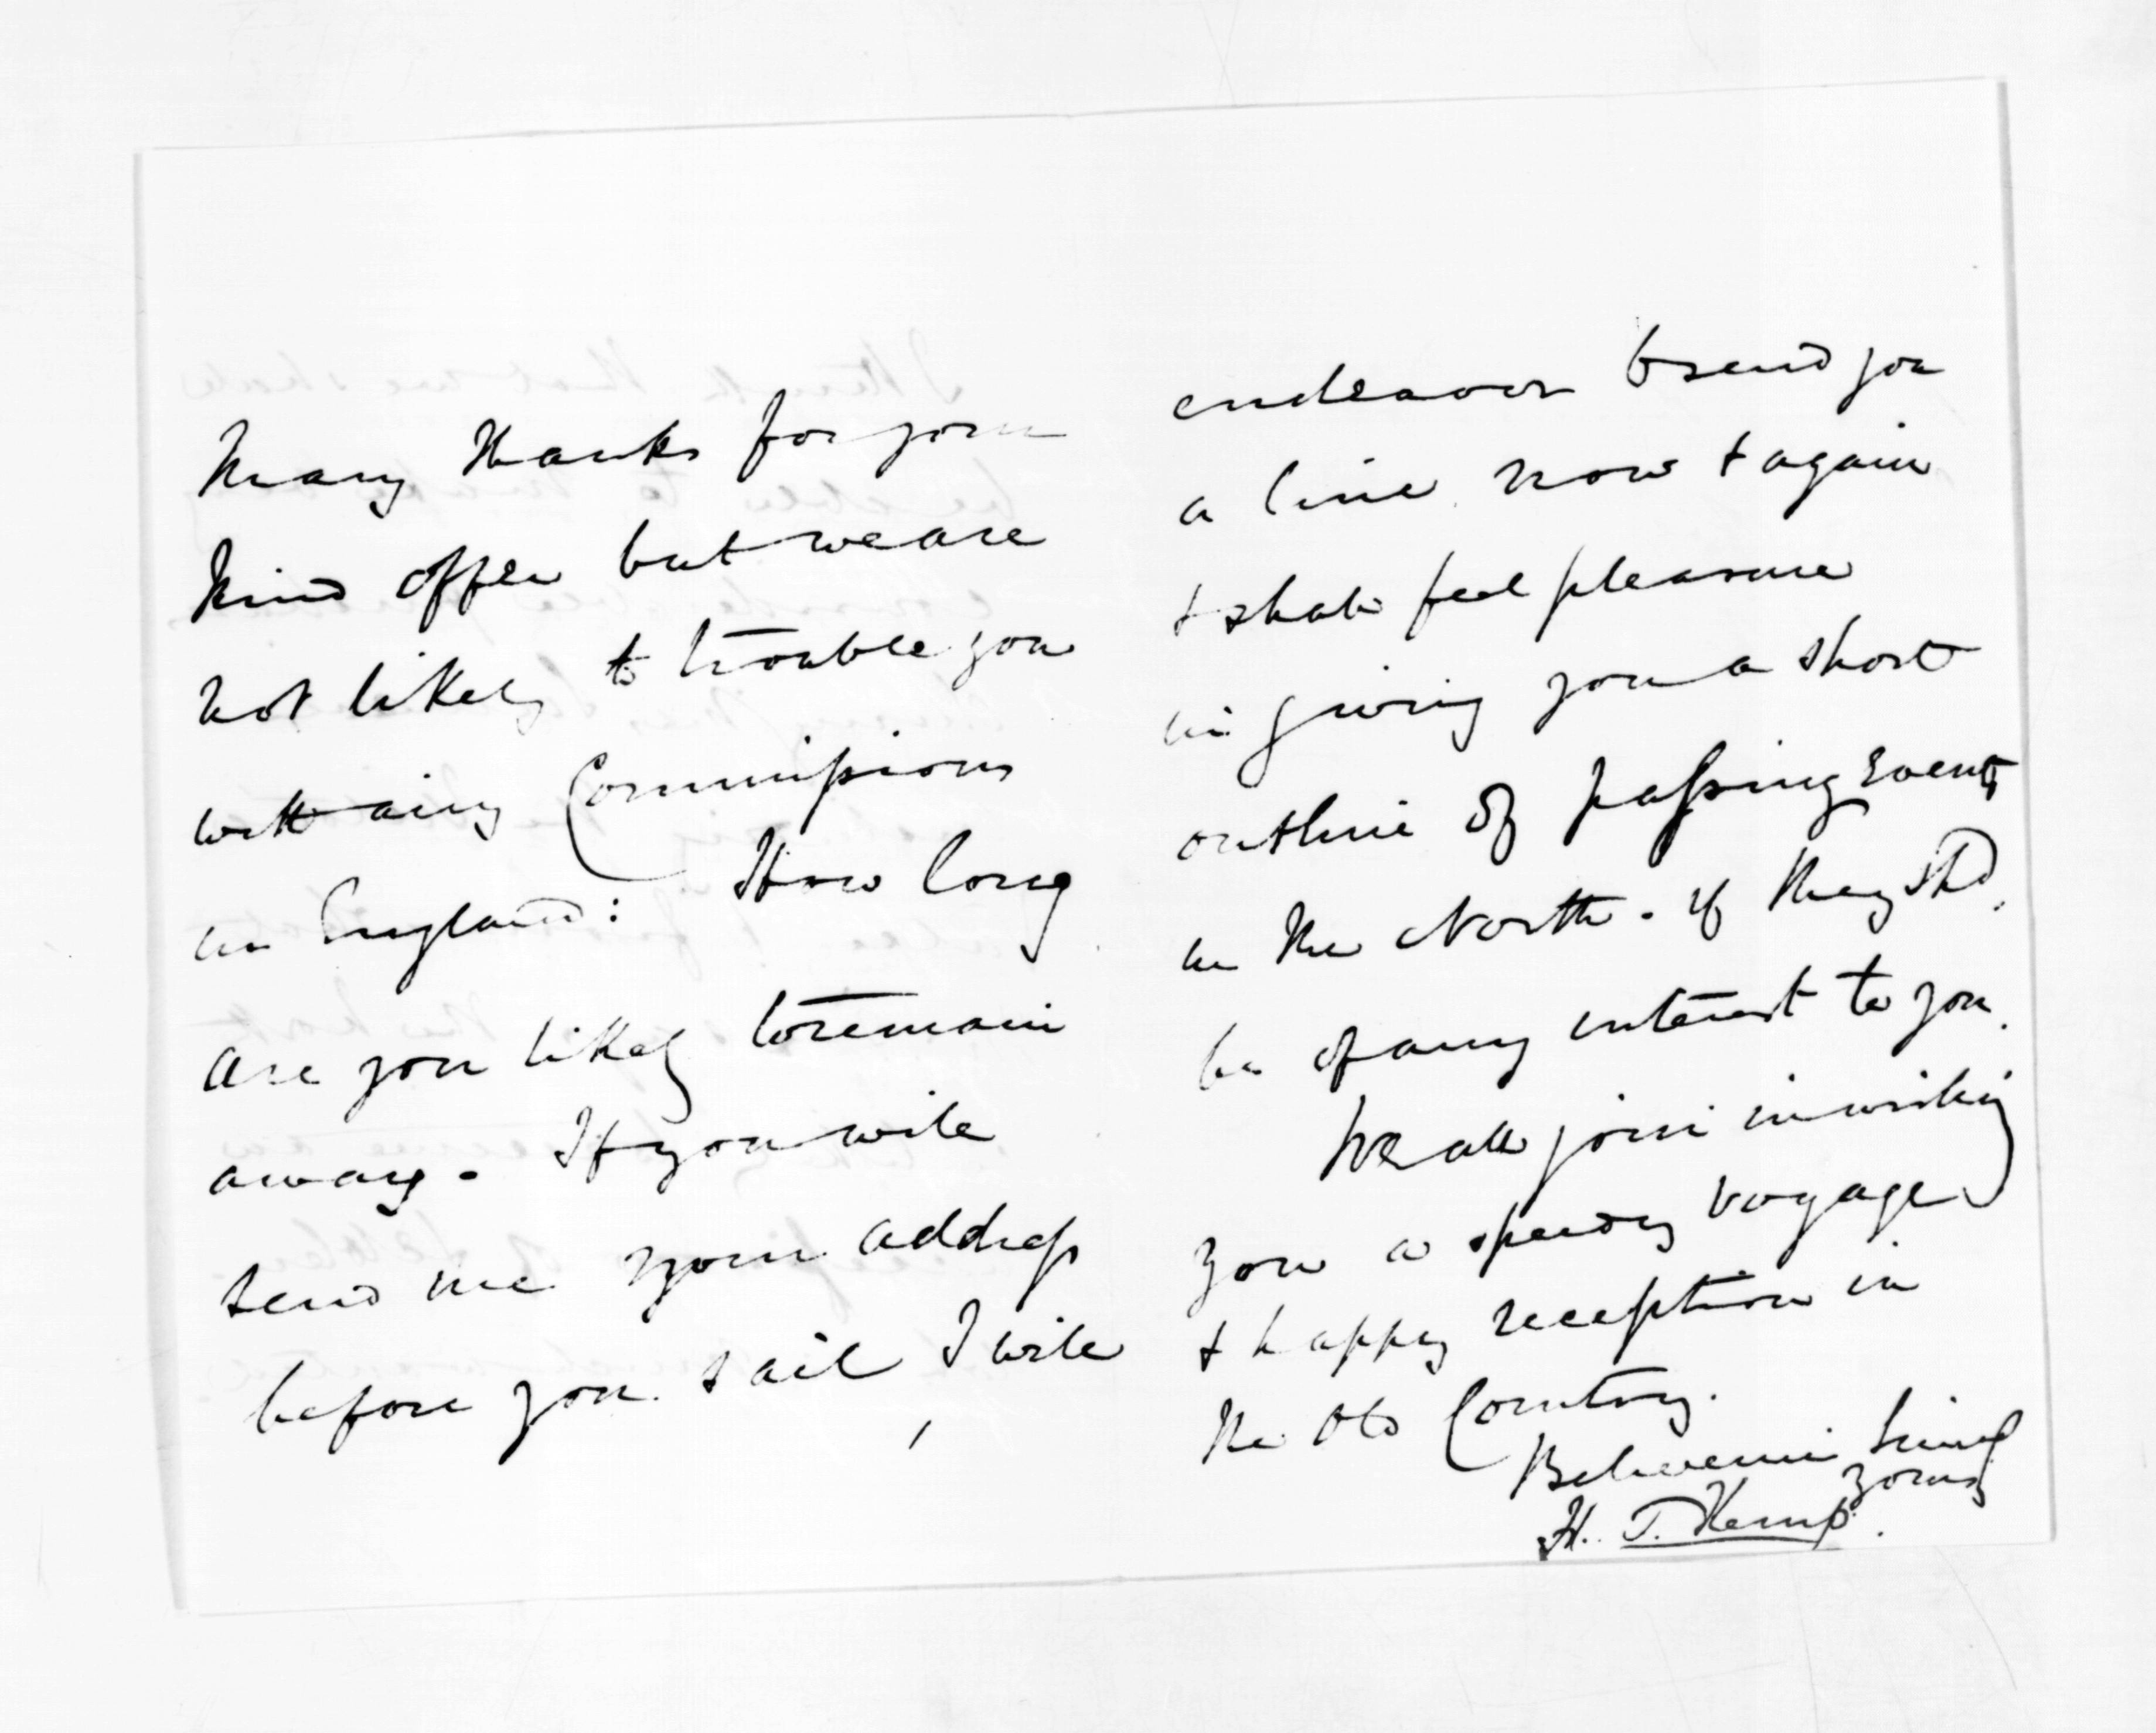 Many thanks for your
kind offer but we are
not likely to trouble you
with any Commissions
in England: How long
are you likely to remain
away. If you will
send me your address
before you sail, I will
endeavor to send you
a line now & again
& shall feel pleasure
in giving you a short
outline of passing events
in the North. if they shd,
be of any interest to you.
We all join in wishing
you a speedy voyage
& happy reception in
the Old Country.
Believe me
yours
H. T. Kemp.